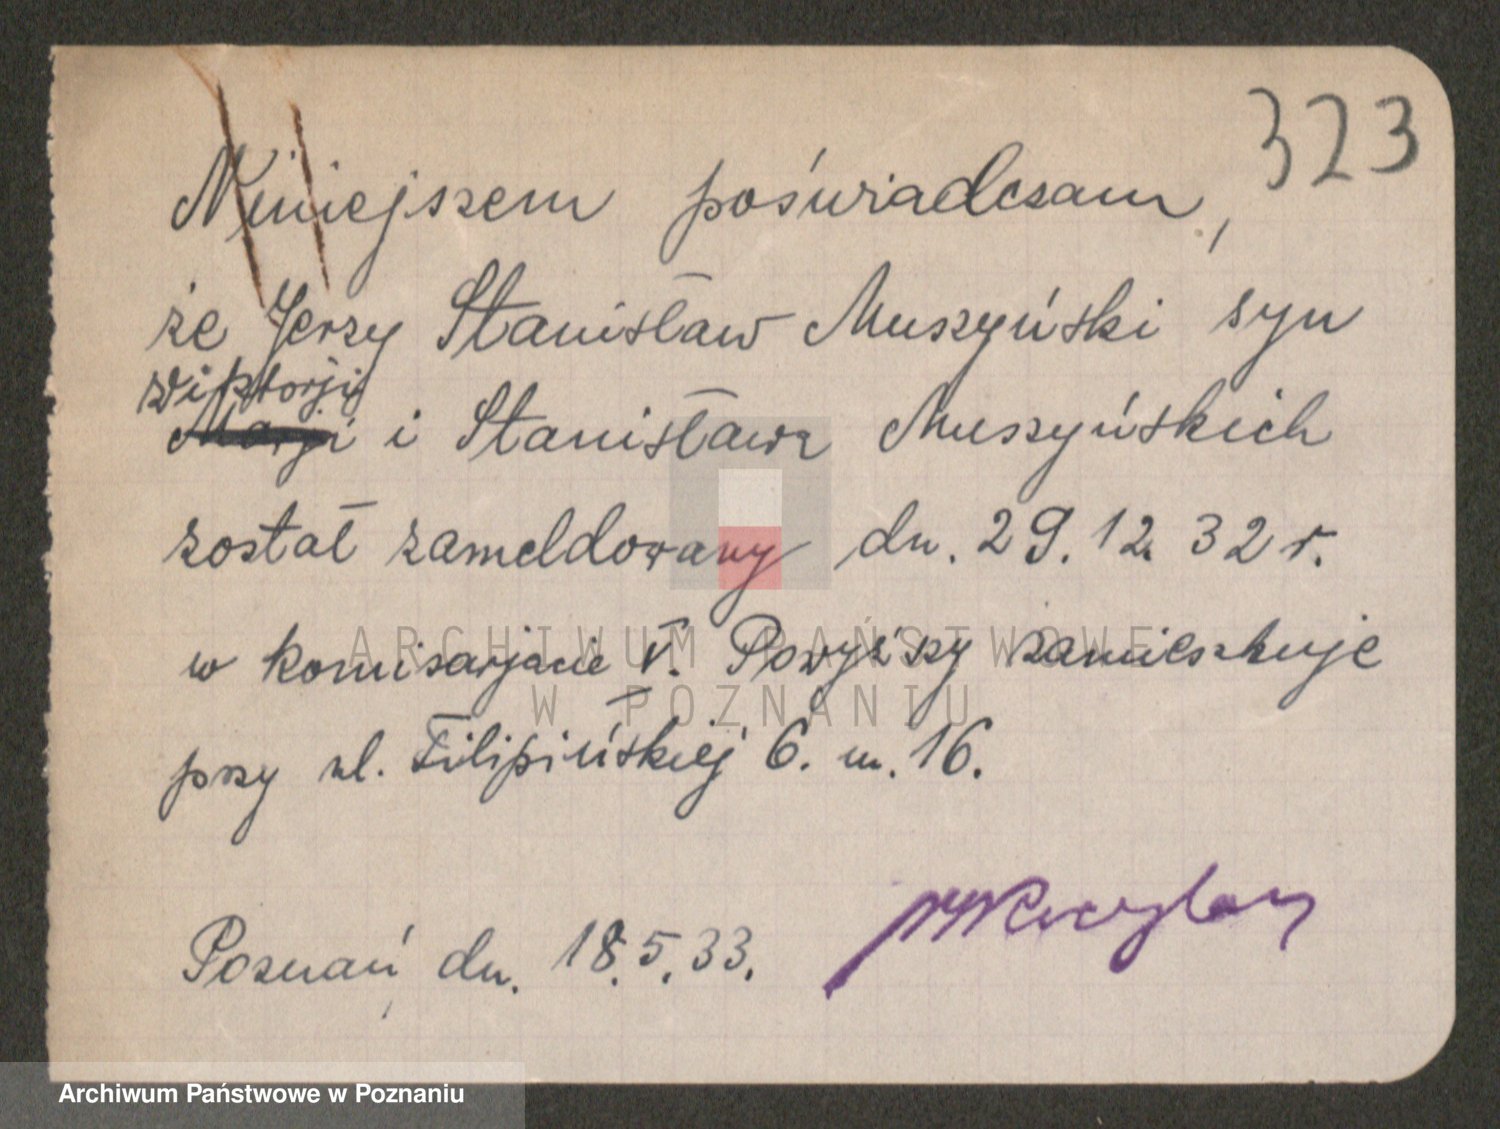 323
Niniejszem poświadczam,
że Jerzy Stanisław Muszyński syn
Wiktorji
Marji i Stanisława Muszyńskich
został zameldowany dn. 29.12.32 r.
w komisarjacie V. Powyższy zamieszkuje
przy ul. Filipińskiej 6. m. 16.
Poznań dn. 18.5.33.
ARCHIWUM PAŃSTWOWE
W POZNANIU
Archiwum Państwowe w Poznaniu